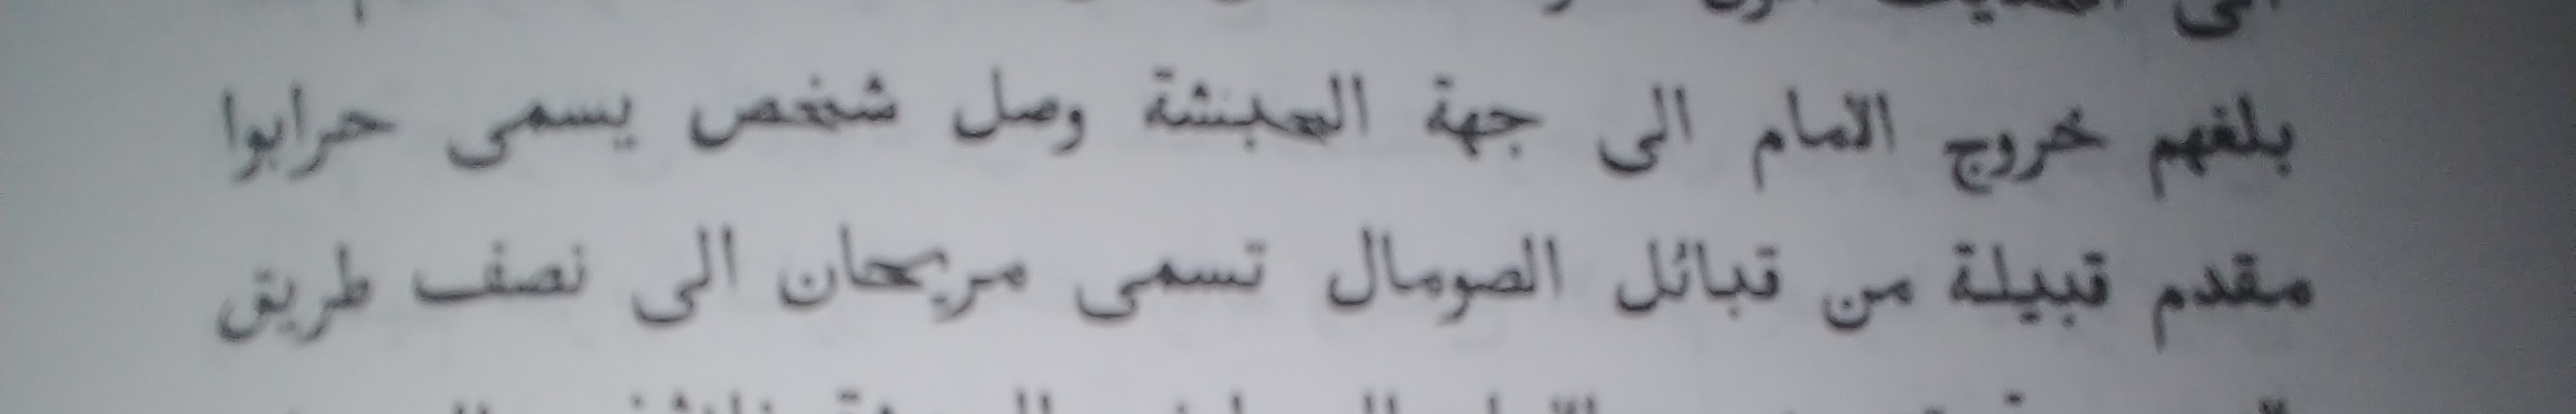 بلغهم خروج الامام الى جهة الحبشة وصل شخص يسمى حرابوا
مقدم قبيلة من قبائل الصومال تسمى مريحان الى نصف طريق